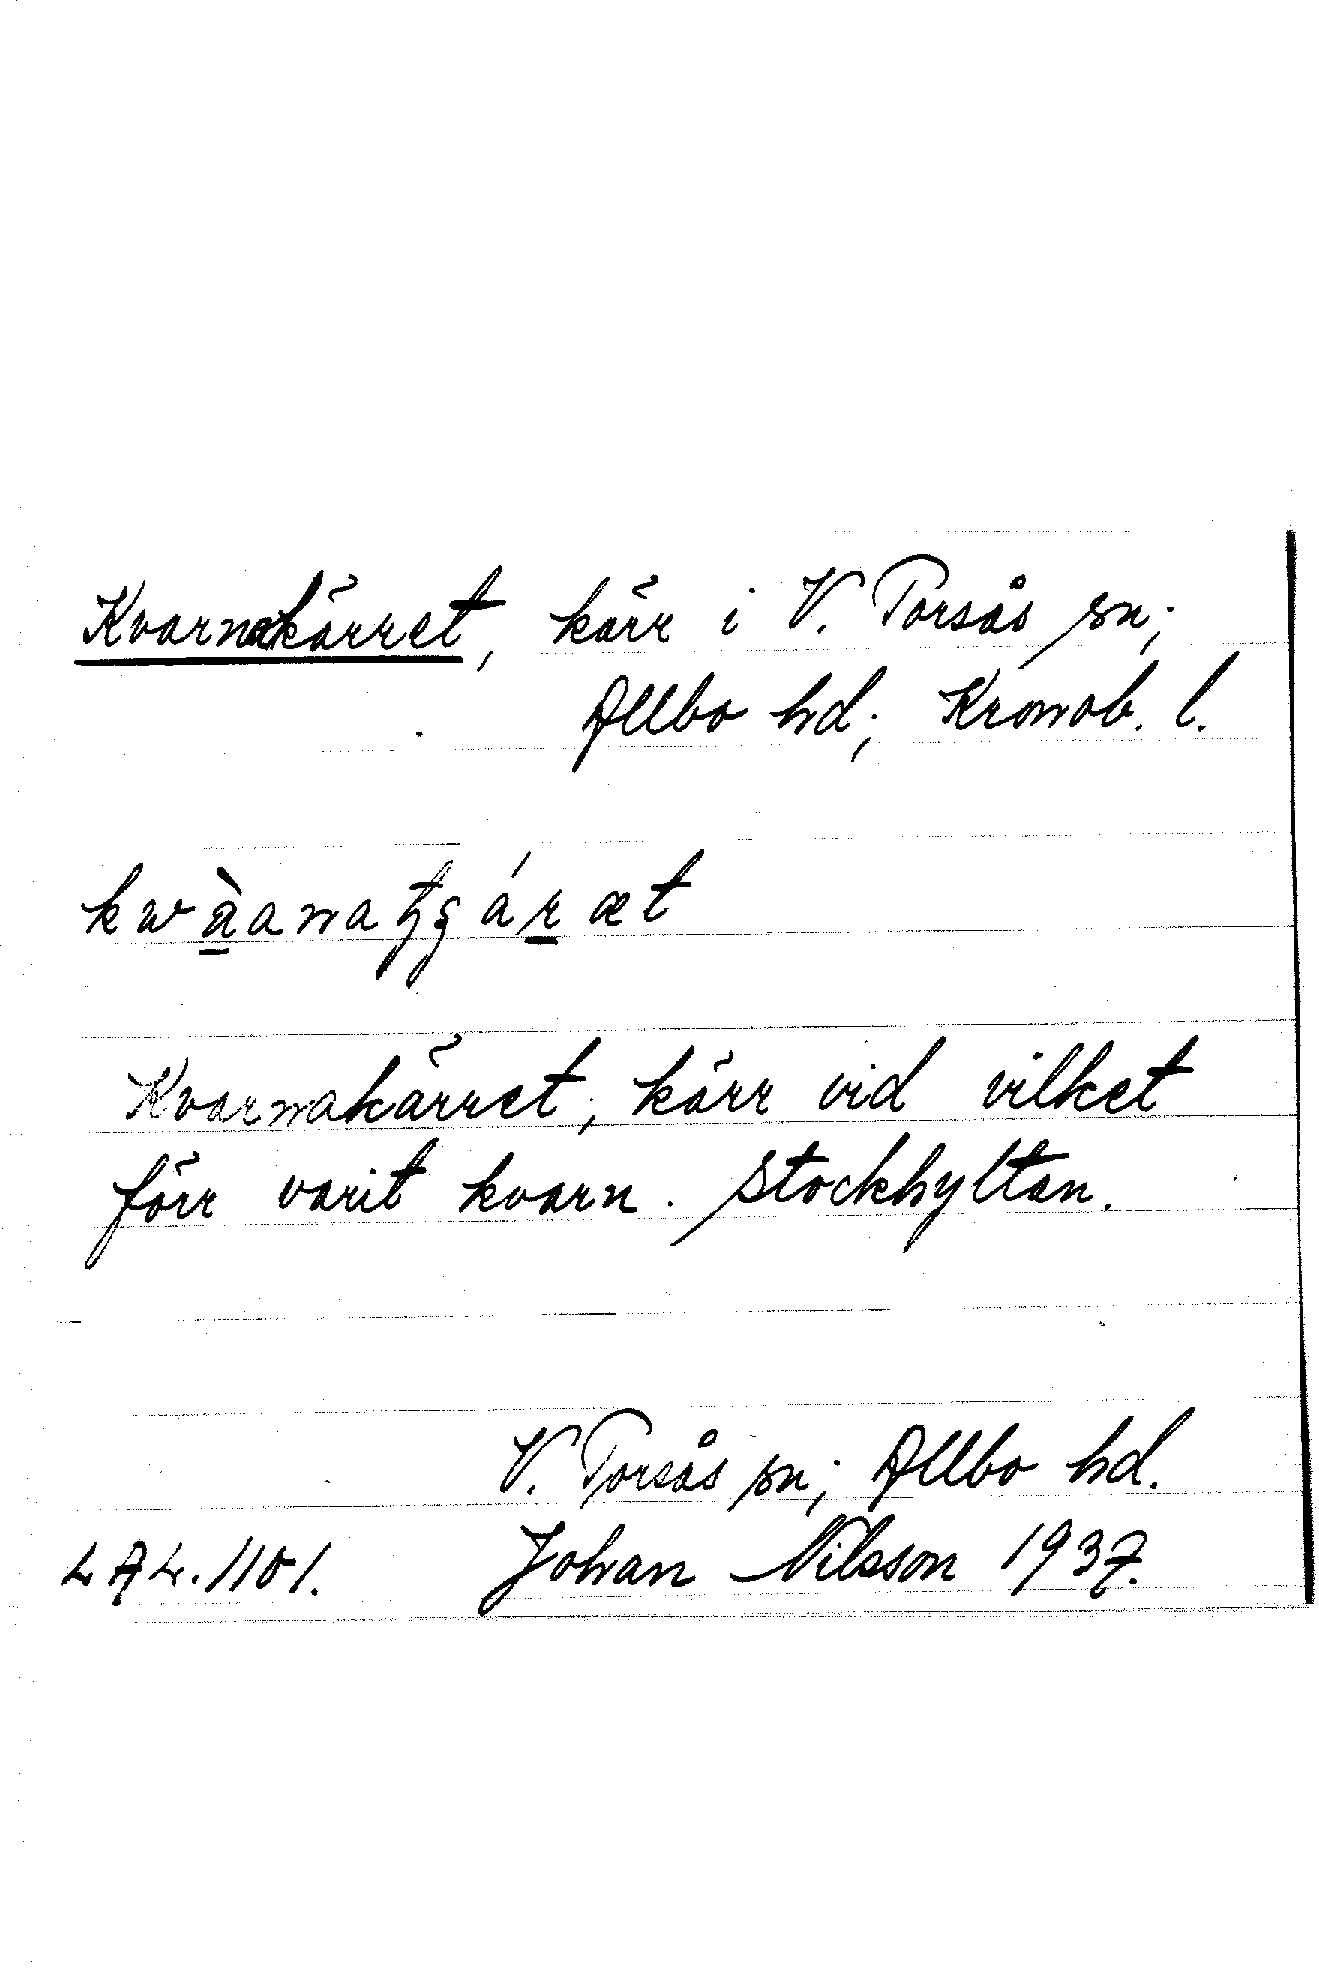 Kvarnakärret, kärr i V. Torsås sn;
Allbo hd; Kronob. l.
kwàanatʒɡáræt
Kvarnakärret, kärr vid vilket
förr varit kvarn. Stockhyltan.
V. Torsås sn; Allbo hd.
LAL. 1101. Johan Nilsson 1937.